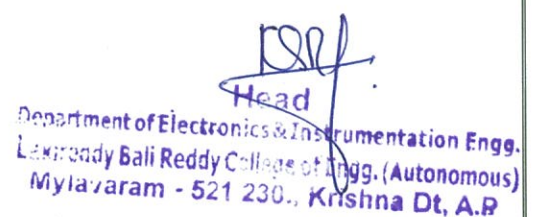 Head
Department of Electronics & Instrumentation Engg.
Lakireddy Bali Reddy College of Engg. (Autonomous)
Mylavaram - 521 230., Krishna Dt, A.P